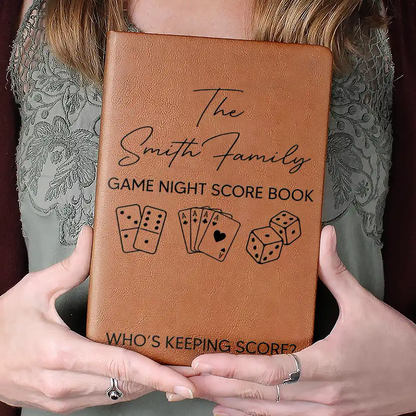 The
Smith Family
GAME NIGHT SCORE BOOK
A A A A
WHO'S KEEPING SCORE?